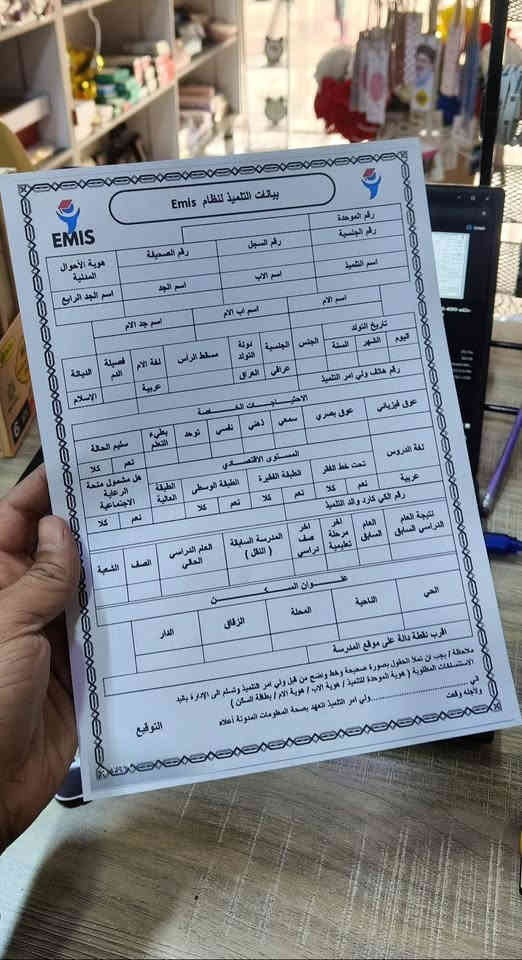 بيانات التلميذ لنظام Emis
EMIS
رقم الموحدة
هوية الأحوال المدنية
رقم الصحيفة
رقم السجل
رقم الجنسية
اسم الجد الرابع
اسم الجد
اسم الاب
اسم التلميذ
اسم الام
اسم اب الام
اسم جد الام
تاريخ التولد
اليوم
الشهر
السنة
الجنس
الجنسية
دولة التولد
مسقط الرأس
لغة الام
فصيلة الدم
الديانة
عراقي
العراق
عربية
الإسلام
رقم هاتف ولي امر التلميذ
الاحتياجات الخاصة
عوق فيزيائي
عوق بصري
سمعي
ذهني
نفسي
توحد
بطيء التعلم
سليم الحالة
نعم
كلا
المستوى الاقتصادي
لغة الدروس
تحت خط الفقر
الطبقة الفقيرة
الطبقة الوسطى
الطبقة العالية
هل مشمول منحة الرعاية الاجتماعية
عربية
نعم
كلا
نعم
كلا
نعم
كلا
نعم
كلا
رقم الكي كارد والد التلميذ
نتيجة العام الدراسي السابق
العام السابق
اخر مرحلة تعليمية
اخر صف دراسي
المدرسة السابقة ( النقل )
العام الدراسي الحالي
الصف
الشعبة
عنوان السكن
الحي
الناحية
المحلة
الزقاق
الدار
اقرب نقطة دالة على موقع المدرسة
ملاحظة / يجب ان تملأ الحقول بصورة صحيحة وخط واضح من قبل ولي امر التلميذ وتسلم الى الإدارة باليد
الاستمساكات المطلوبة ( هوية الموحدة للتلميذ / هوية الاب / هوية الام / بطاقة السكن )
اني ........................ولي امر التلميذ اتعهد بصحة المعلومات المدونة أعلاه
ولأجله وقعت
التوقيع